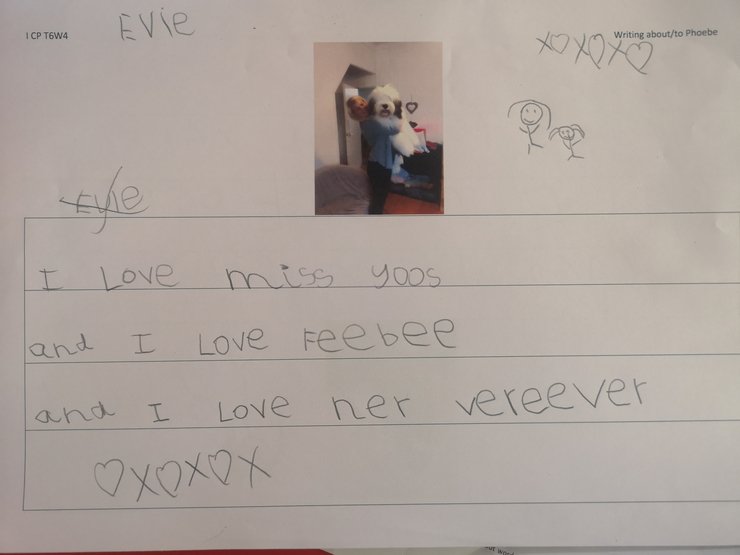 1CP T6W4
EViE
Writing about/to Phoebe
XOXOXO
Evie
I Love miss yoos
and I Love Feebee
and I Love her vereever
OXOXOX